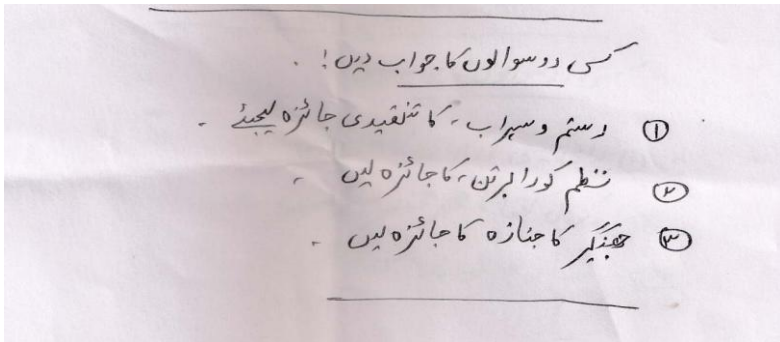 کسی دو سوالوں کا جواب دیں!
① رستم و سہراب، کا تنقیدی جائزہ لیجئے۔
② نظم کورا برتن، کا جائزہ لیں۔
③ کا جنازہ کا جائزہ لیں۔